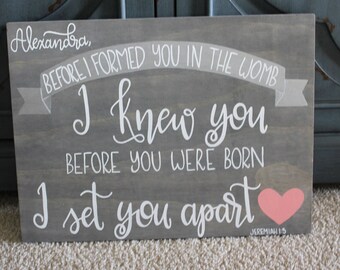 Alexandra,
BEFORE I FORMED YOU IN THE WOMB
I knew you
BEFORE YOU WERE BORN
I set you apart
JEREMIAH 1:5